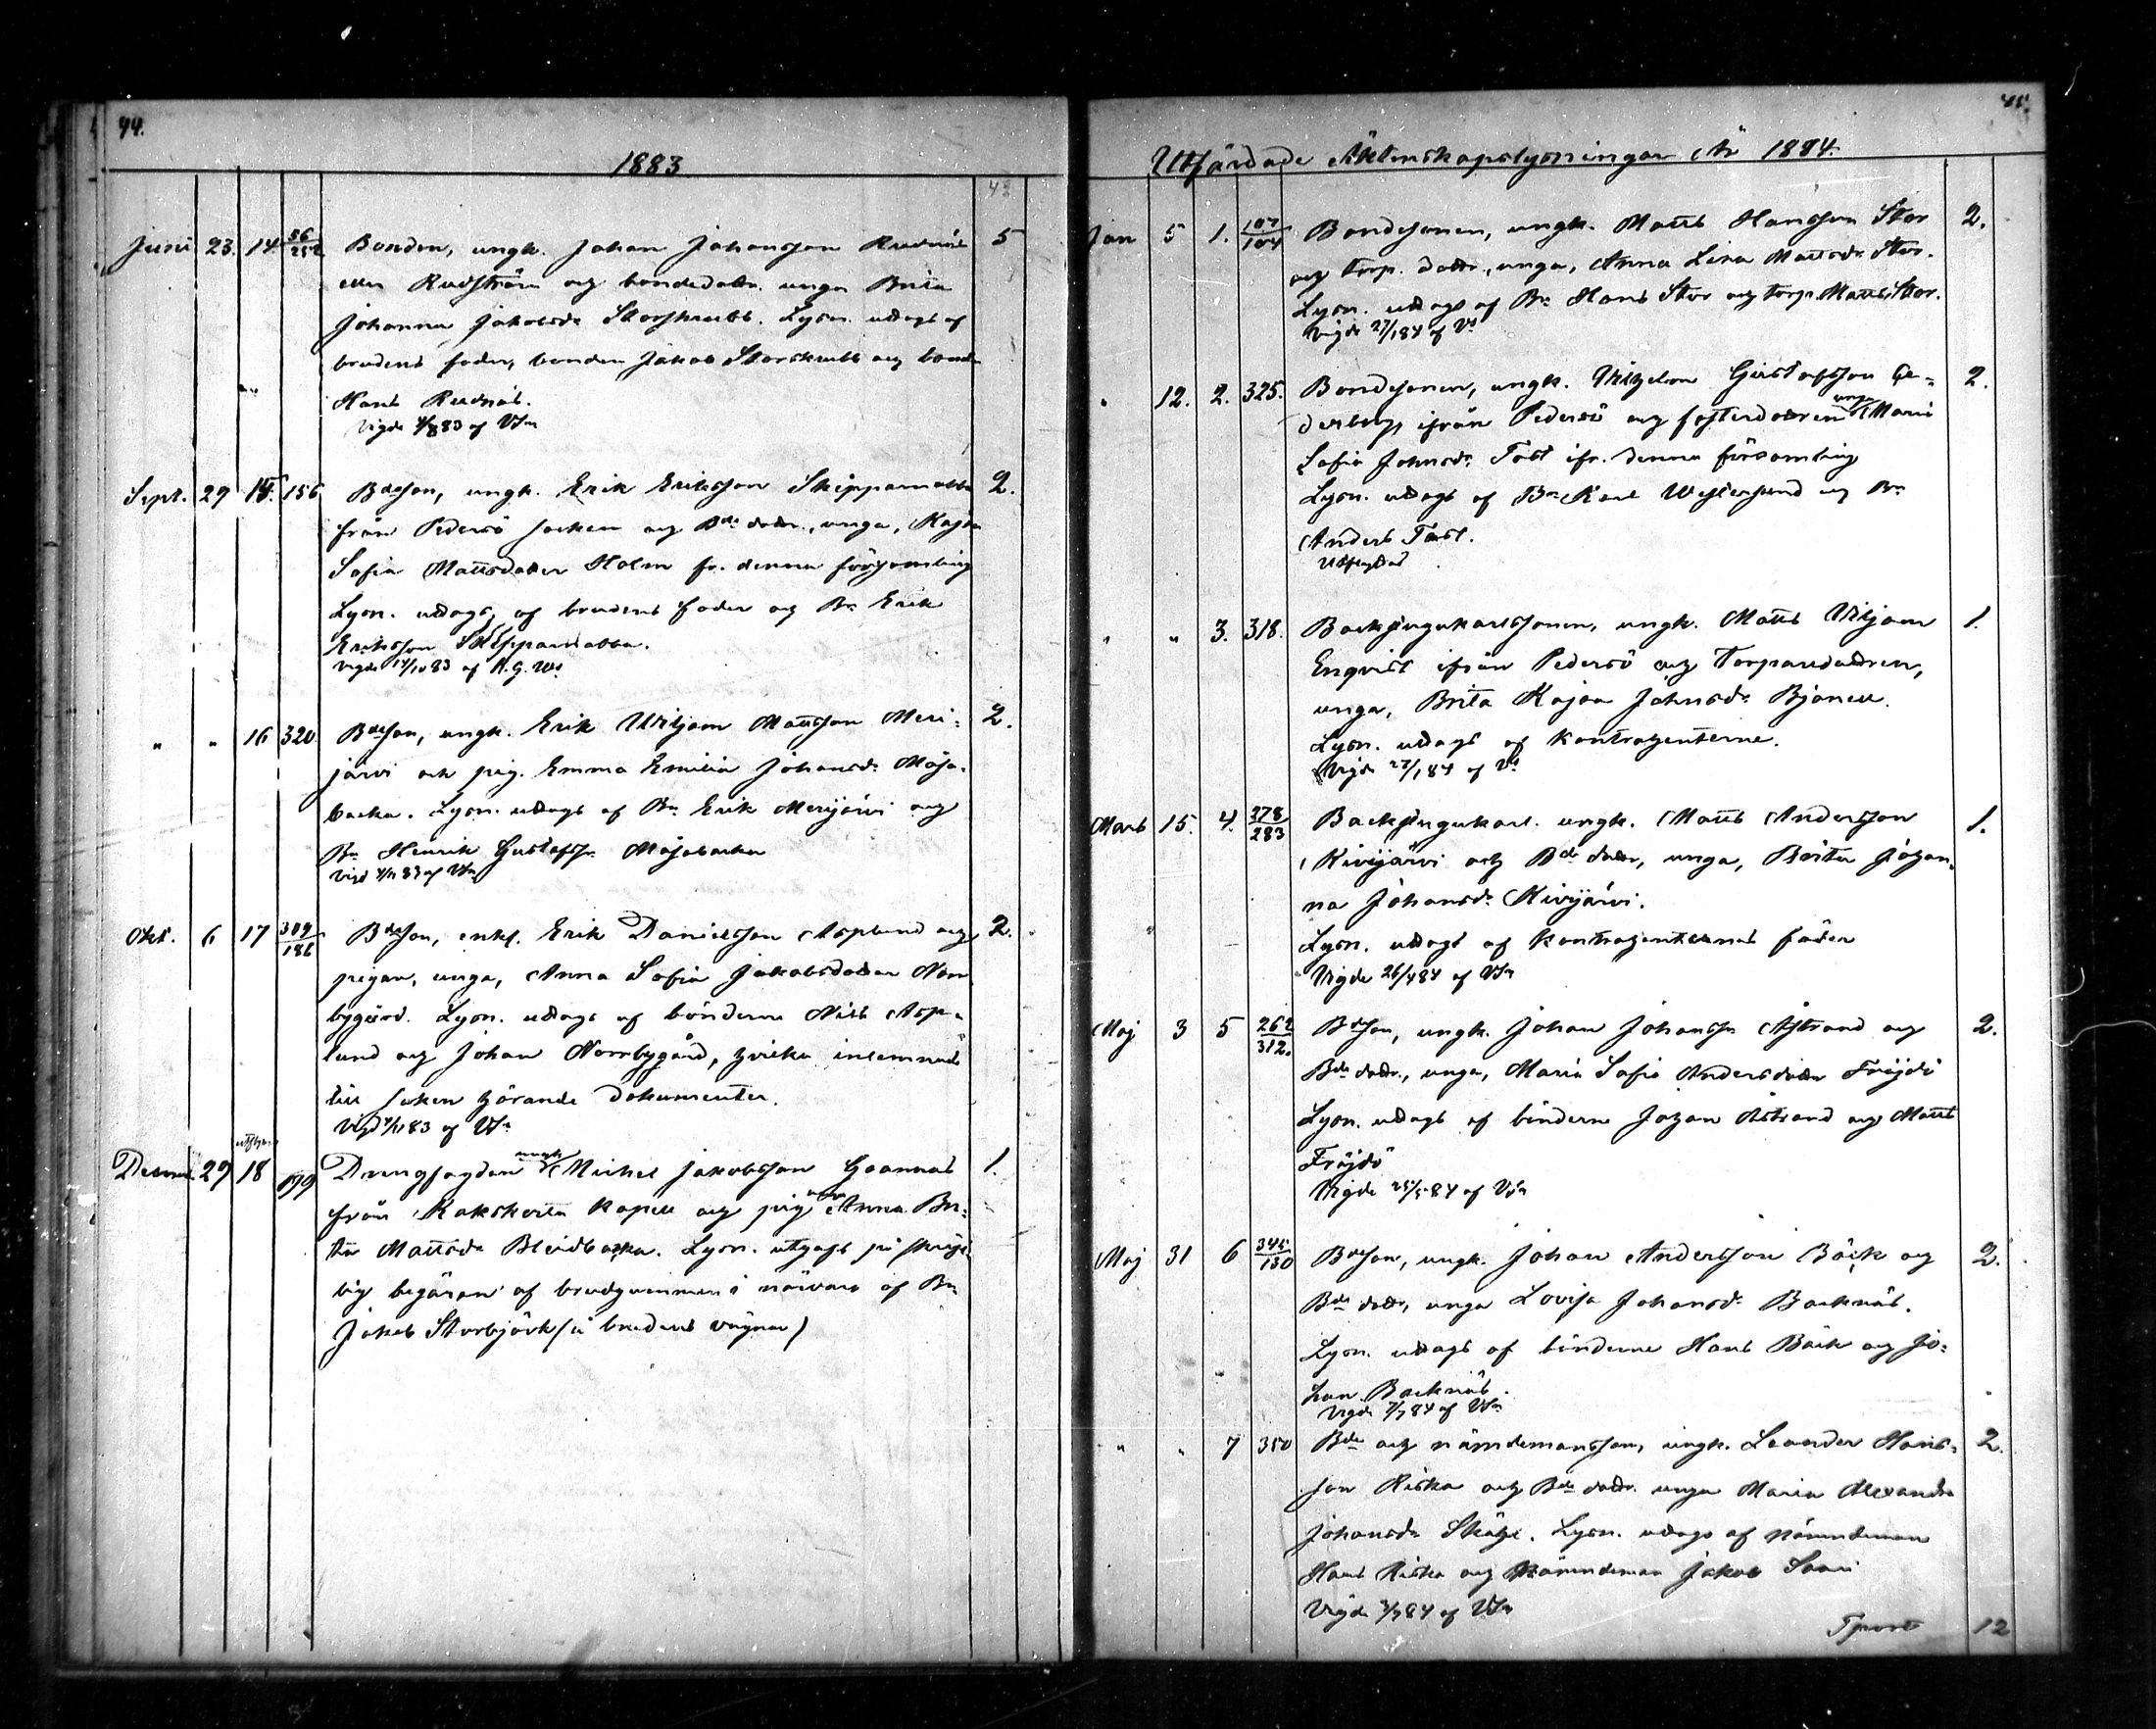 44.
1883
Juni 23. 14. 56/252 Bonden, ungk. Johan Johansson Rudnäs 5
eller Rudström och bondedottr. unga Brita
Johanna Jakobsdr Storskrubb. Lysn. uttogs af
brudens fader, bonden Jakob Storskrubb och bond
Hans Rudnäs.
Vigde 83 af
Sept. 29 15. 156 Bdeson, ungk. Erik Eriksson Skepparnabba 2.
från Pedersö socken och Bde dottr., unga, Kajsa
Sofia Mattsdotter Holm fr. denna församling
Lysn. uttogs af brudens fader och Bn Erik
Eriksson Skepparnabba.
Vigde 14/10 83 af K. G. Ws
" " 16 320. Bdeson, ungk. Erik Wiljam Mattson Meri= 2.
järvi och pig. Emma Emilia Johansdr Måsa-
backa. Lysn. uttogs af Bn Erik Merijärvi och
Bn Henrik Gustafsn Måsabacka
Vigd 4/11 83 af
Okt. 6 17 309/186 Bdeson, enkl. Erik Danielsson Asplund och 2.
pigan, unga, Anna Sofia Jakobsdotter Norr
bygård. Lysn. uttogs af bönderna Nils Asp-
lund och Johan Norrbygård, hvilka inlemnade
till saken hörande dokumenter.
Vigd 4/11 83 af
Decem. 29 18 199 Drengsogden ungk Michel Jakobsson Grannas 1.
från kapell och pig unga Anna Bri=
ta Mattsdr Bleidbacka. Lysn. utgafs på skrift
lig begäran af brudgummen i närvaro af Bn
Jakob Storbjörk (å brudens vägnar)
45.
Utfärdade Äktenskapslysningar År 1884.
Jan 5 1. 107/104 Bondesonen, ungk. Matts Hansson Stor 2.
och torp. dottr., unga, Anna Lisa Mattsdr Stor.
Lysn. uttogs af Bn Hans Stor och torp. Matts Stor.
Vigde 27/1 84 af Vs
" 12. 2. 325. Bondesonen, ungk. Wilhelm Gustafsson Ce= 2.
derberg ifrån Pedersö och fosterdottren unga Maria
Sofia Johnsdr Tast ifr. denna församling
Lysn. uttogs af Bn Karl Westersund och Bn
Anders Tast.
Utflyttad
" " 3. 318. Backstugukarlssonen, ungk. Matts Wiljam 1.
Enqvist ifrån Pedersö och Torparedottren,
unga, Brita Kajsa Johnsdr Bjonell.
Lysn. uttogs af kontrahenterne.
Vigde 27/1 84 af Vs
Mars 15. 4. 278/283 Backstugukarl. ungk. Matts Andersson 1.
Kivijärvi och Bde dottr, unga, Brita Johan-
na Johansdr Kivijärvi.
Lysn. uttogs af kontrahenternas fäder
Vigde 26/4 84 af
Maj 3 5 262/312. Bdeson, ungk. Johan Johansson Åstrand och 2.
Bde dottr., unga, Maria Sofia Andersdotter Fröjdö
Lysn. uttogs af bönderne Johan Åstrand och Matts
Fröjdö
Vigde 25/5 84 af
Maj 31 6 345/130 Bdeson, ungk. Johan Andersson Bäck och 2.
Bde dottr, unga Lovisa Johansdr Backnäs.
Lysn. uttogs af bönderne Hans Bäck och Jo=
han Backnäs.
Vigde 84 af
" " 7 350 Bde och nämdemansson, ungk. Leander Hans= 2.
son Riska och Bde dottr. unga Maria Alexandra
Johansdr Skåhe. Lysn. uttogs af Nämndeman
Hans Riska och Nämndeman Jakob Saari
Vigde 84 af
Tport 12